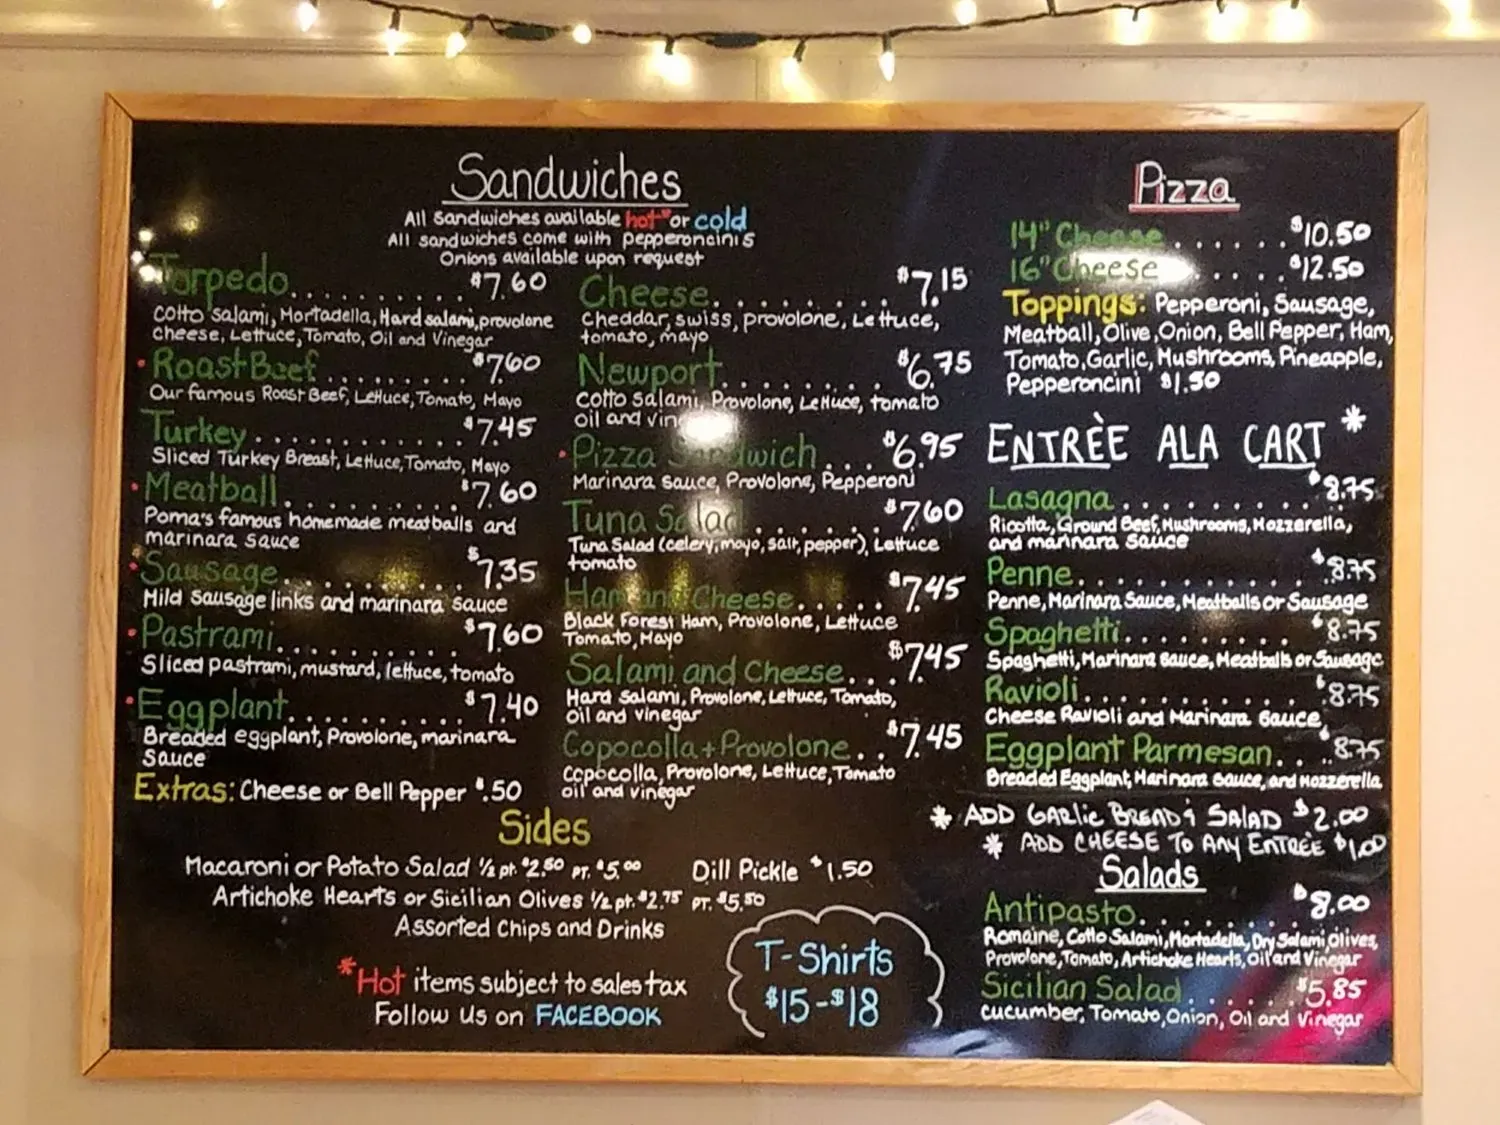 Sandwiches
All Sandwiches available hot* or cold
All sandwiches come with pepperoncini's
Onions available upon request
Torpedo.......... $7.60
Cotto salami, Mortadella, Hard salami, provolone
cheese, Lettuce, Tomato, Oil and Vinegar
Roast Beef......... $7.60
Our famous Roast Beef, Lettuce, Tomato, Mayo
Turkey............ $7.45
Sliced Turkey Breast, Lettuce, Tomato, Mayo
Meatball.......... $7.60
Poma's famous homemade meatballs and
marinara sauce
Sausage.......... $7.35
Mild sausage links and marinara sauce
Pastrami.......... $7.60
Sliced pastrami, mustard, lettuce, tomato
Eggplant.......... $7.40
Breaded eggplant, Provolone, marinara
Sauce
Extras: Cheese or Bell Pepper $.50
Cheese........ $7.15
Cheddar, swiss, provolone, Lettuce,
tomato, mayo
Newport........ $6.75
Cotto salami, Provolone, Lettuce, tomato
oil and vinegar
Pizza Sandwich... $6.95
Marinara sauce, Provolone, Pepperoni
Tuna Salad....... $7.60
Tuna Salad (celery, mayo, salt, pepper), Lettuce
tomato
Ham and Cheese..... $7.45
Black Forest Ham, Provolone, Lettuce
Tomato, Mayo
Salami and Cheese... $7.45
Hard salami, Provolone, Lettuce, Tomato,
oil and vinegar
Copocolla + Provolone.. $7.45
Copocolla, Provolone, Lettuce, Tomato
oil and vinegar
Sides
Macaroni or Potato Salad ½ pt. $2.50 PT. $5.00 Dill Pickle $1.50
Artichoke Hearts or Sicilian Olives ½ pt. $2.75 PT. $5.50
Assorted Chips and Drinks
*Hot items subject to sales tax
Follow us on FACEBOOK
T-Shirts
$15-$18
Pizza
14" Cheese...... $10.50
16" Cheese..... $12.50
Toppings: Pepperoni, Sausage,
Meatball, Olive, Onion, Bell Pepper, Ham,
Tomato, Garlic, Mushrooms, Pineapple,
Pepperoncini $1.50
ENTRÈE ALA CART *
Lasagna.......... $8.75
Ricotta, Ground Beef, Mushrooms, Mozzerella,
and marinara sauce
Penne............ $8.75
Penne, Marinara Sauce, Meatballs or Sausage
Spaghetti......... $8.75
Spaghetti, Marinara Sauce, Meatballs or Sausage
Ravioli........... $8.75
Cheese Ravioli and Marinara Sauce
Eggplant Parmesan... $8.75
Breaded Eggplant, Marinara Sauce, and Mozzerella
* ADD GARLIC BREAD & SALAD $2.00
* ADD CHEESE TO ANY ENTRÈE $1.00
Salads
Antipasto........ $8.00
Romaine, Cotto Salami, Mortadella, Dry Salami, Olives,
Provolone, Tomato, Artichoke Hearts, Oil and Vinegar
Sicilian Salad...... $5.85
cucumber, Tomato, Onion, Oil and Vinegar